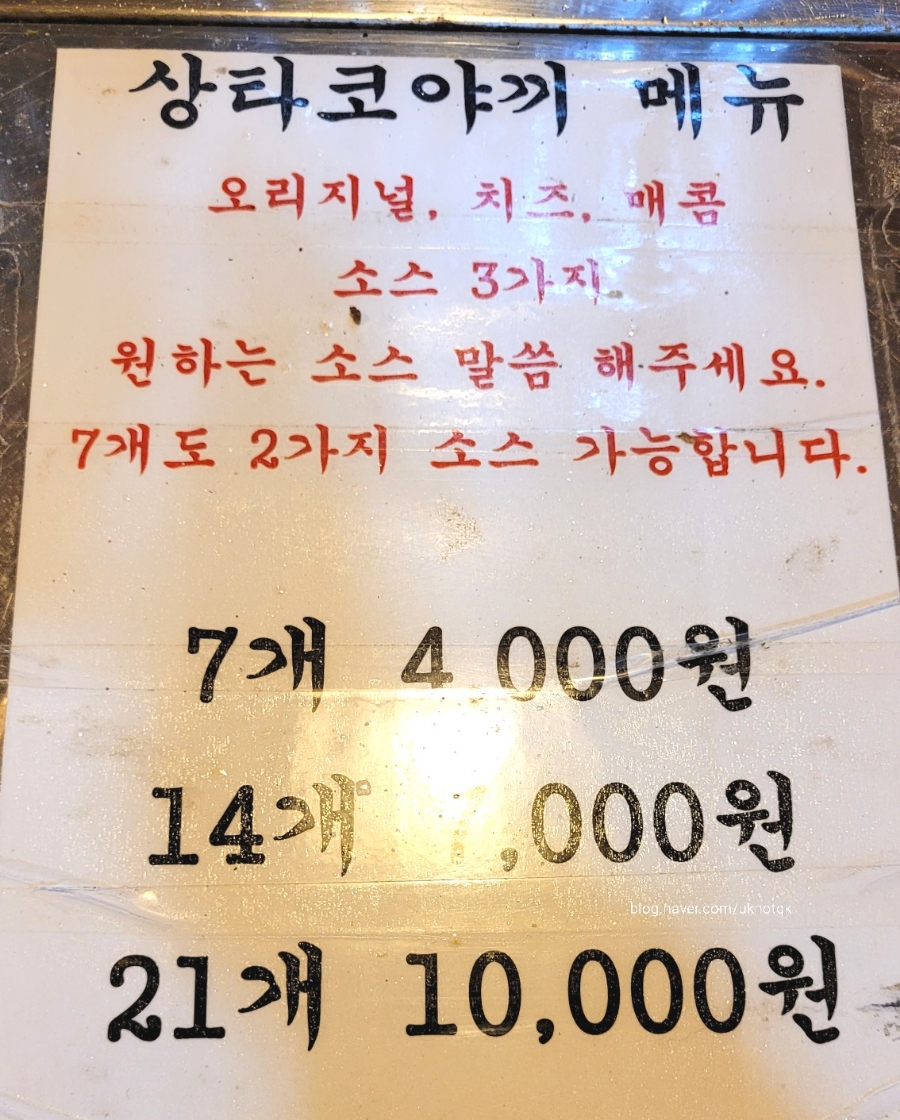 상타코야끼 메뉴
오리지널, 치즈, 매콤
소스 3가지
원하는 소스 말씀 해주세요.
7개도 2가지 소스 가능합니다.
7개 4,000원
14개 7,000원
blog.naver.com/uknotqk
21개 10,000원